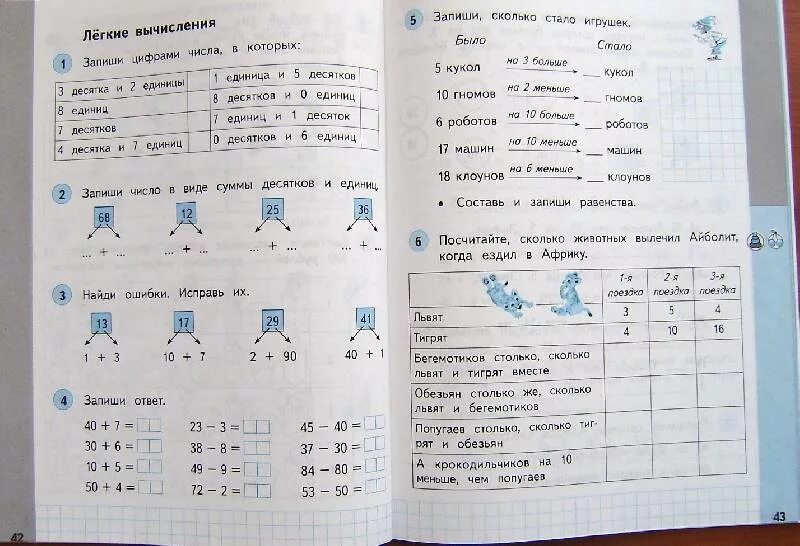 Лёгкие вычисления
1 Запиши цифрами числа, в которых:
3 десятка и 2 единицы
1 единица и 5 десятков
8 единиц
8 десятков и 0 единиц
7 десятков
7 единиц и 1 десяток
4 десятка и 7 единиц
0 десятков и 6 единиц
2 Запиши число в виде суммы десятков и единиц.
68 12 25 36
... + ... ... + ... ... + ... ... + ...
3 Найди ошибки. Исправь их.
13 17 29 41
1 + 3 10 + 7 2 + 90 40 + 1
4 Запиши ответ.
40 + 7 = 23 – 3 = 45 – 40 =
30 + 6 = 38 – 8 = 37 – 30 =
10 + 5 = 49 – 9 = 84 – 80 =
50 + 4 = 72 – 2 = 53 – 50 =
42
5 Запиши, сколько стало игрушек.
Было Стало
5 кукол на 3 больше __ кукол
10 гномов на 2 меньше __ гномов
6 роботов на 10 больше __ роботов
17 машин на 10 меньше __ машин
18 клоунов на 6 меньше __ клоунов
• Составь и запиши равенства.
6 Посчитайте, сколько животных вылечил Айболит,
когда ездил в Африку.
1-я поездка 2-я поездка 3-я поездка
Львят 3 5 4
Тигрят 4 10 16
Бегемотиков столько, сколько
львят и тигрят вместе
Обезьян столько же, сколько
львят и бегемотиков
Попугаев столько, сколько тиг-
рят и обезьян
А крокодильчиков на 10
меньше, чем попугаев
43